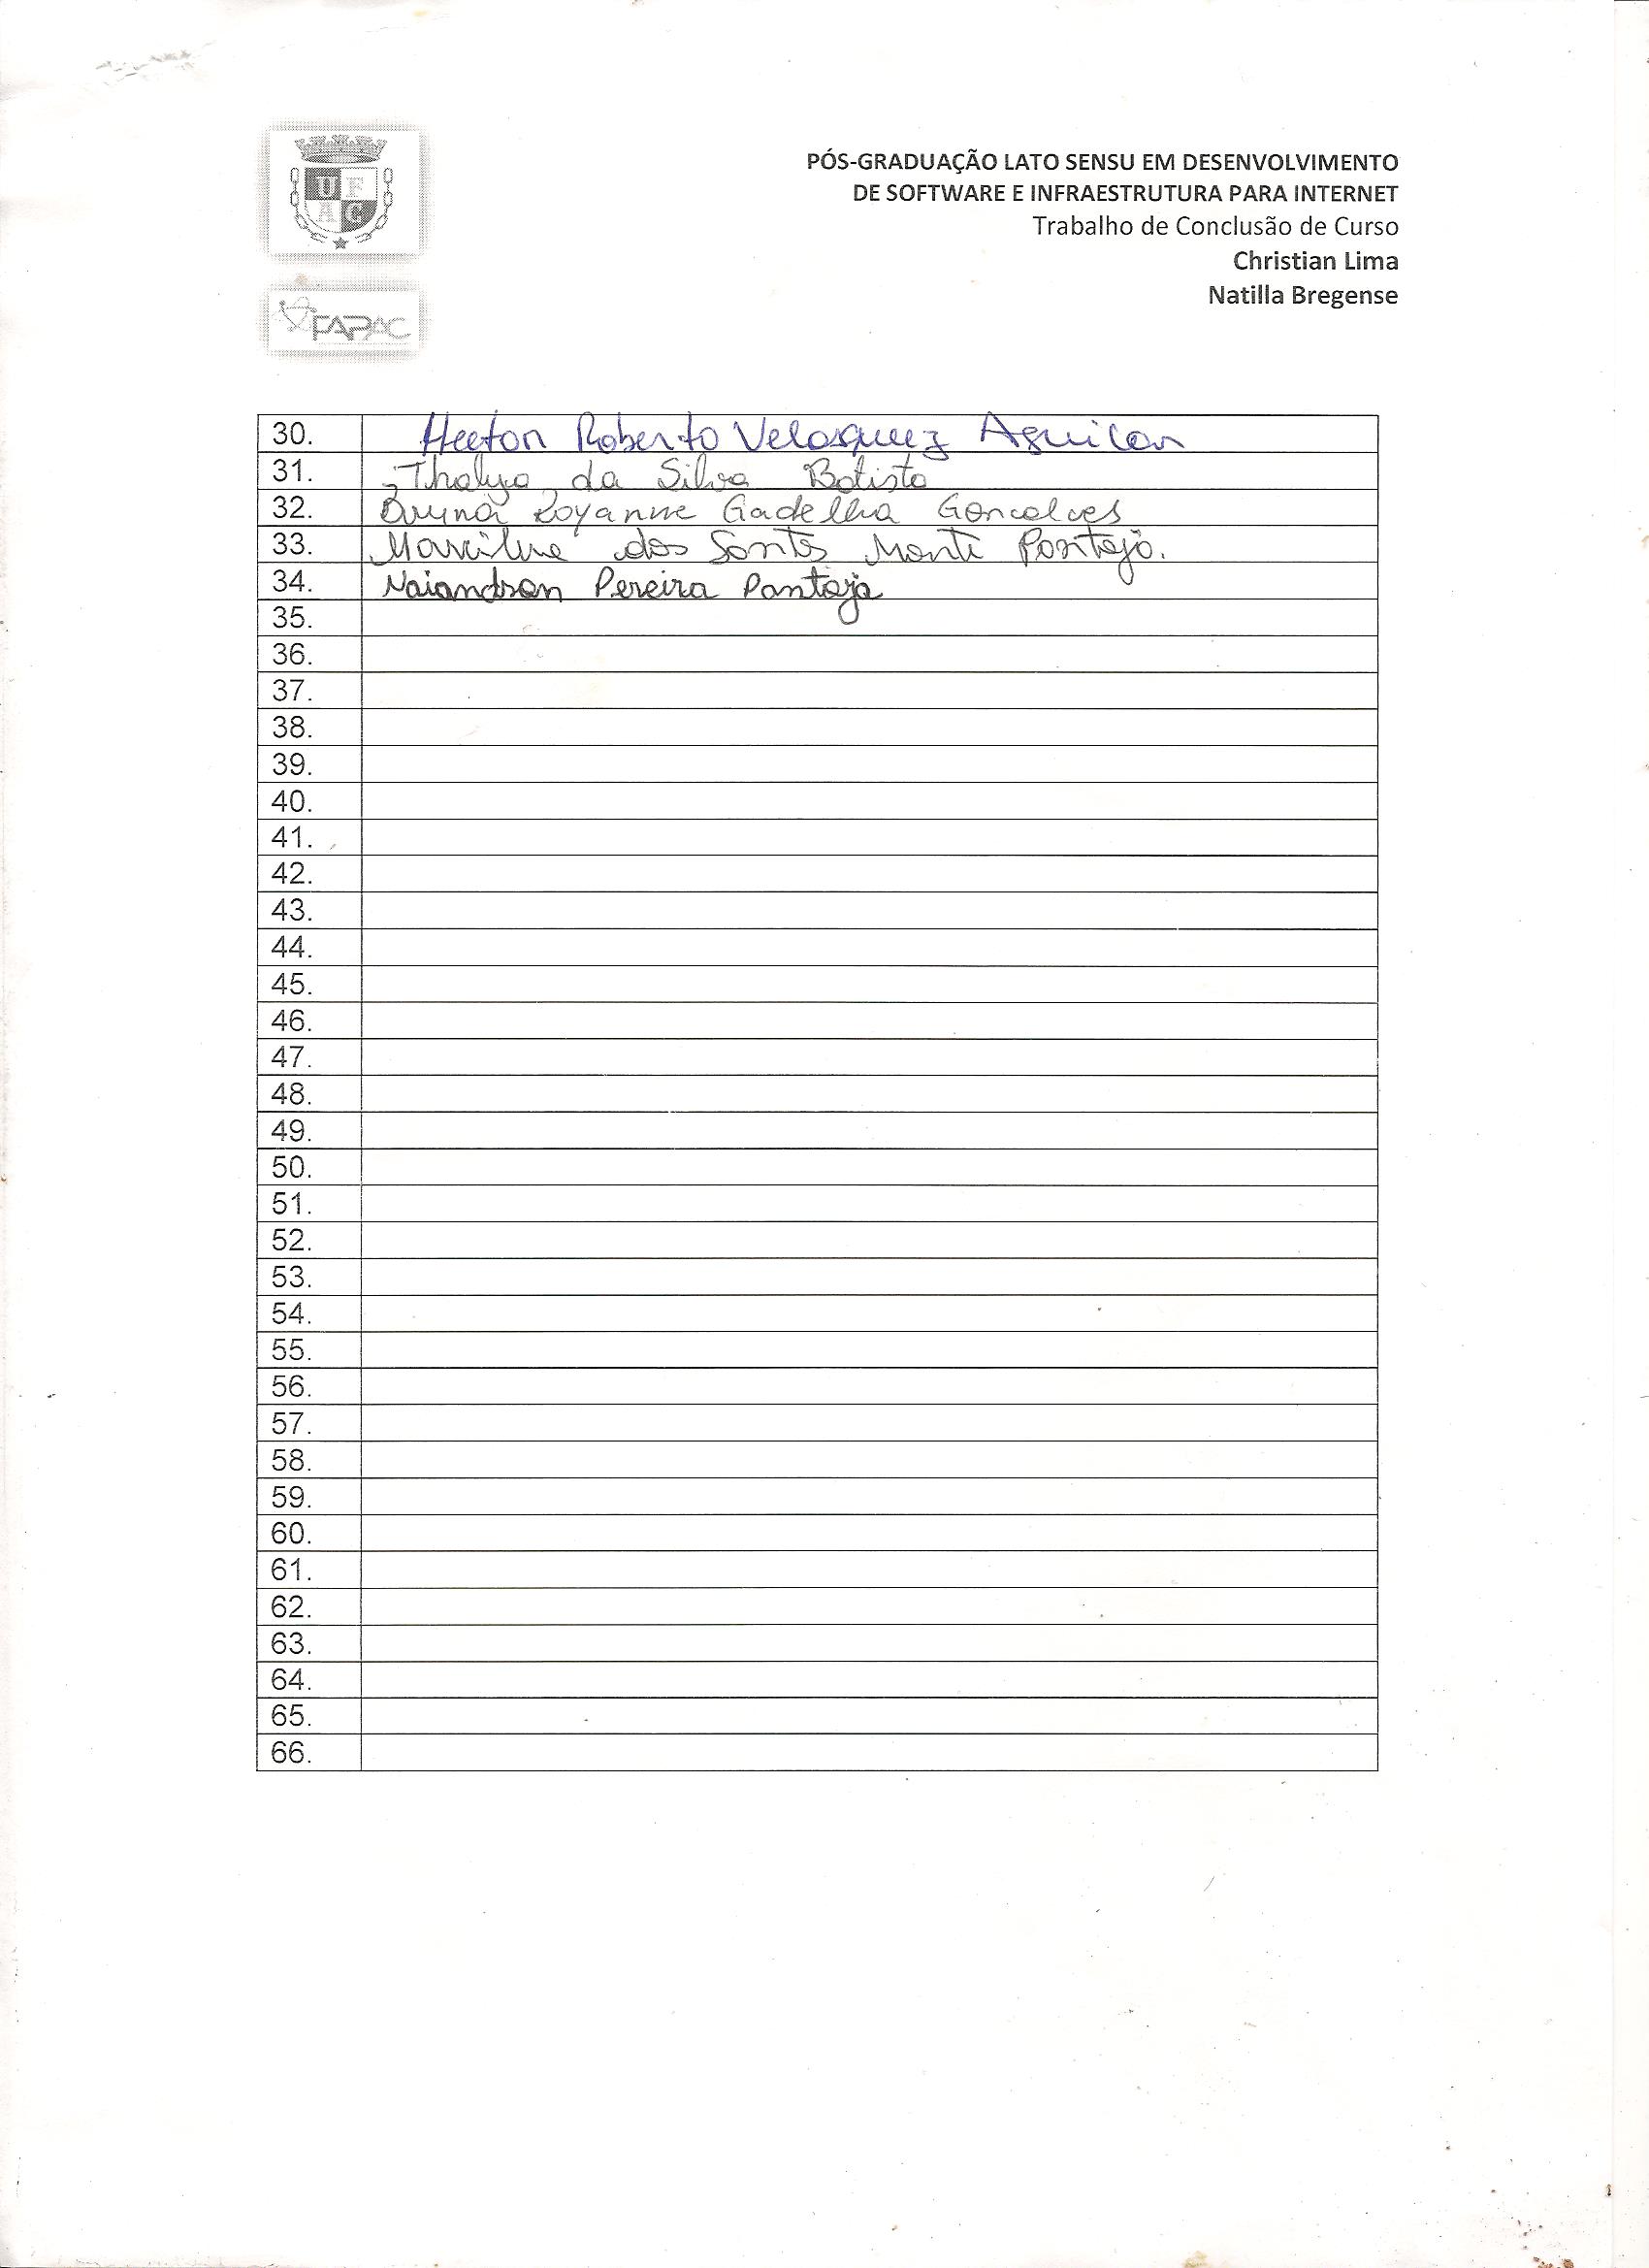 UFAC
FAPAC
PÓS-GRADUAÇÃO LATO SENSU EM DESENVOLVIMENTO
DE SOFTWARE E INFRAESTRUTURA PARA INTERNET
Trabalho de Conclusão de Curso
Christian Lima
Natilla Bregense
30. Roberto Velasquez Aguilar
31. Thalya da Silva Batista
32. Bruna Royanne Gadelha Goncalves
33. dos Santos Monte Pantoja.
34. Naiandson Pereira Pantoja
35.
36.
37.
38.
39.
40.
41.
42.
43.
44.
45.
46.
47.
48.
49.
50.
51.
52.
53.
54.
55.
56.
57.
58.
59.
60.
61.
62.
63.
64.
65.
66.